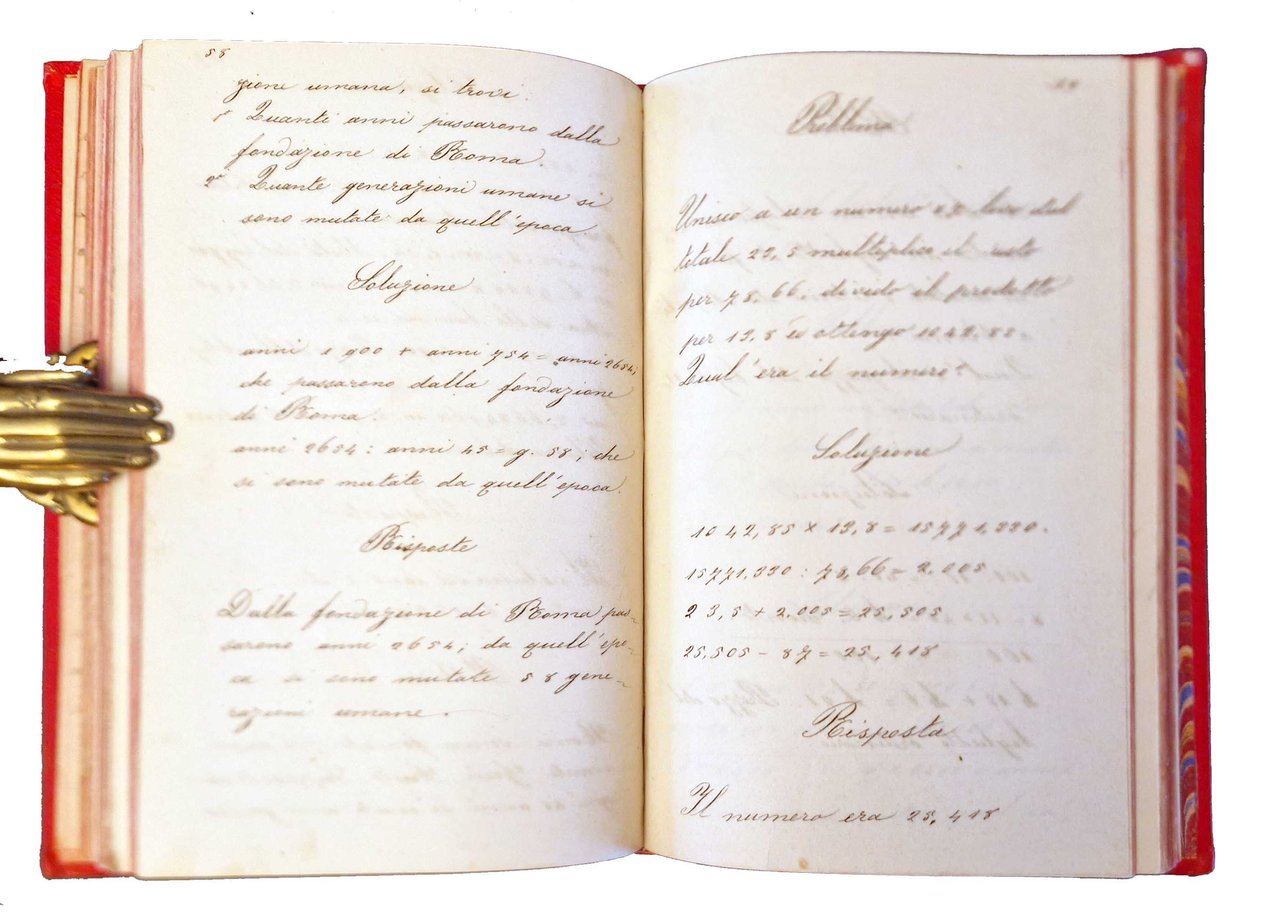 58
zione umana, si trovi.
1° Quanti anni passarono dalla
fondazione di Roma.
2° Quante generazioni umane si
sono mutate da quell'epoca.
Soluzione
anni 1900 + anni 754 = anni 2654,
che passarono dalla fondazione
di Roma.
anni 2654 : anni 45 = g. 58; che
si sono mutate da quell'epoca.
Risposte
Dalla fondazione di Roma pas-
sarono anni 2654; da quell'epo-
ca si sono mutate 58 gene-
razioni umane.
59
Problema
Unisco a un numero 87 levo dal
totale 23,5 multiplico il resto
per 78,66; divido il prodotto
per 19,8 e ottengo 1042,85.
Qual'era il numero?
Soluzione
1042,85 x 19,8 =
: 78,66 = 2.005
23,5 + 2.005 = 25,505
25,505 - 87 = 25,418
Risposta
Il numero era 25,418